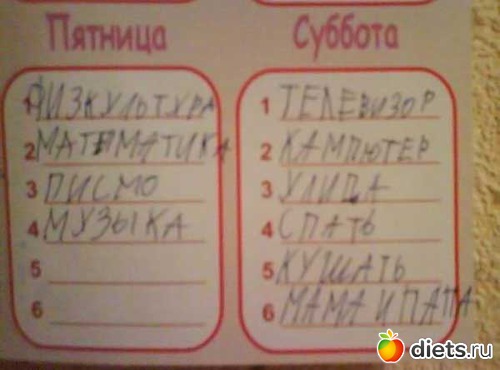 Пятница
1 ФИЗКУЛЬТУРА
2 МАТЕМАТИКА
3 ПИСМО
4 МУЗЫКА
5
6
Суббота
1 ТЕЛЕВИЗОР
2 КАМПЮТЕР
3 УЛИЦА
4 СПАТЬ
5 КУШАТЬ
6 МАМА И ПАПА
diets.ru